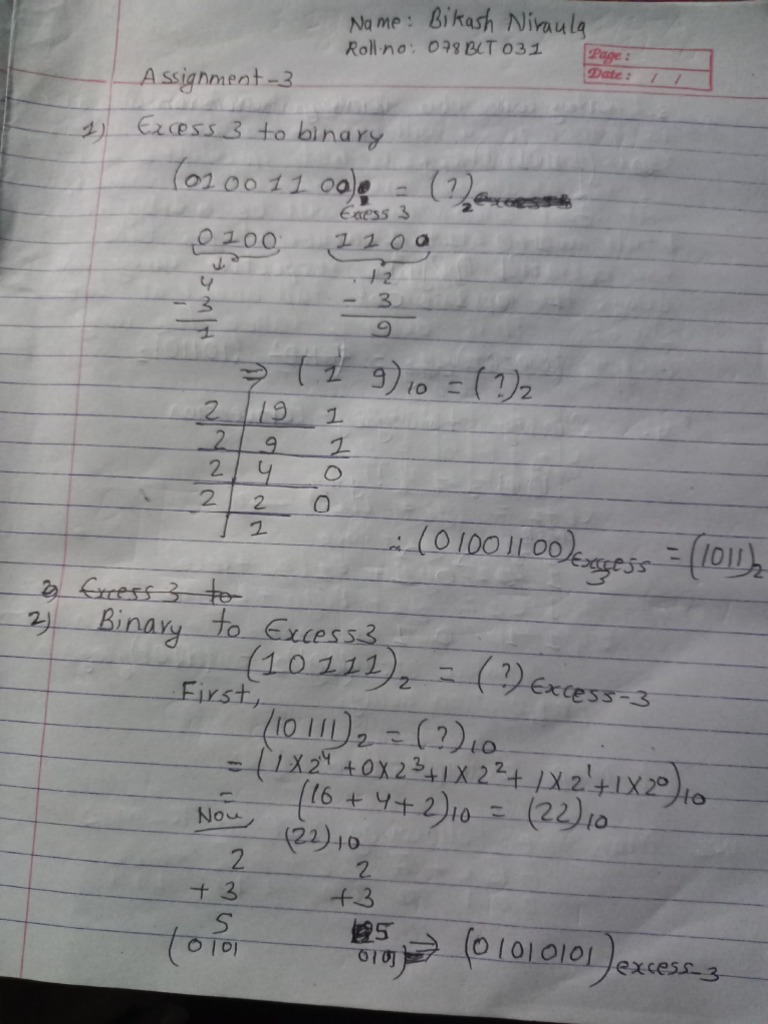 Name: Bikash Niraula
Roll.no: 078BCT031
Page:
Date: / /
Assignment-3
1) Excess 3 to binary
(01001100)Excess 3 = (?)2
0100 1100
4 12
- 3 - 3
1 9
⇒ (1 9)10 = (?)2
2 19 1
2 9 1
2 4 0
2 2 0
1
∴ (01001100)Excess 3 = (1011)2
2) Excess 3 to
2) Binary to Excess3
(10111)2 = (?)Excess-3
First,
(10111)2 = (?)10
= (1×2⁴ + 0×2³ + 1×2² + 1×2¹ + 1×2⁰)10
= (16 + 4 + 2)10 = (22)10
Now,
(22)10
2 2
+ 3 +3
5 5
(0101 0101) ⇒ (01010101)excess-3